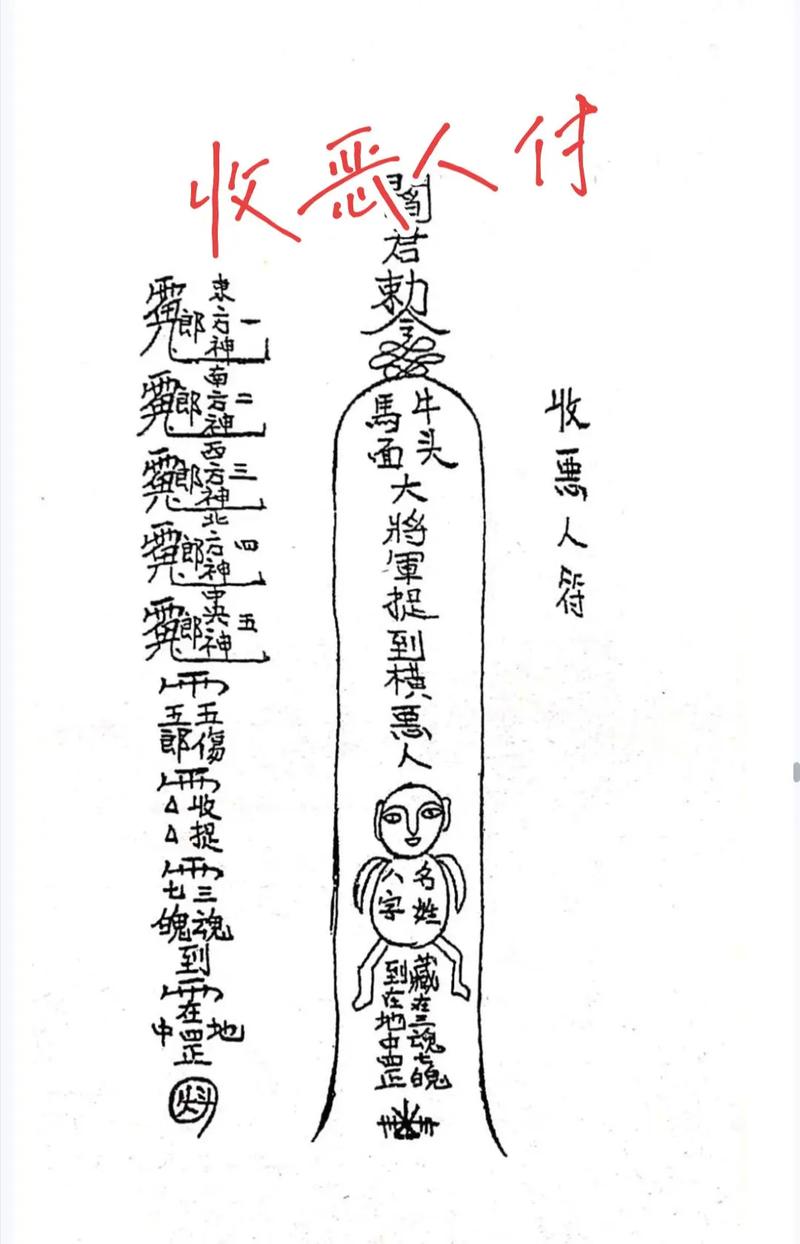 收恶人付
收惡人符
閻君勅令
牛头
馬面
大將軍捉到橫惡人
名姓
八字
藏在三魂七魄
到在地中罡
東方神一郎
南方神二郎
西方神三郎
北方神四郎
中央神五郎
五傷
五郎
收捉
△△
三魂
七魄
到
在地中罡